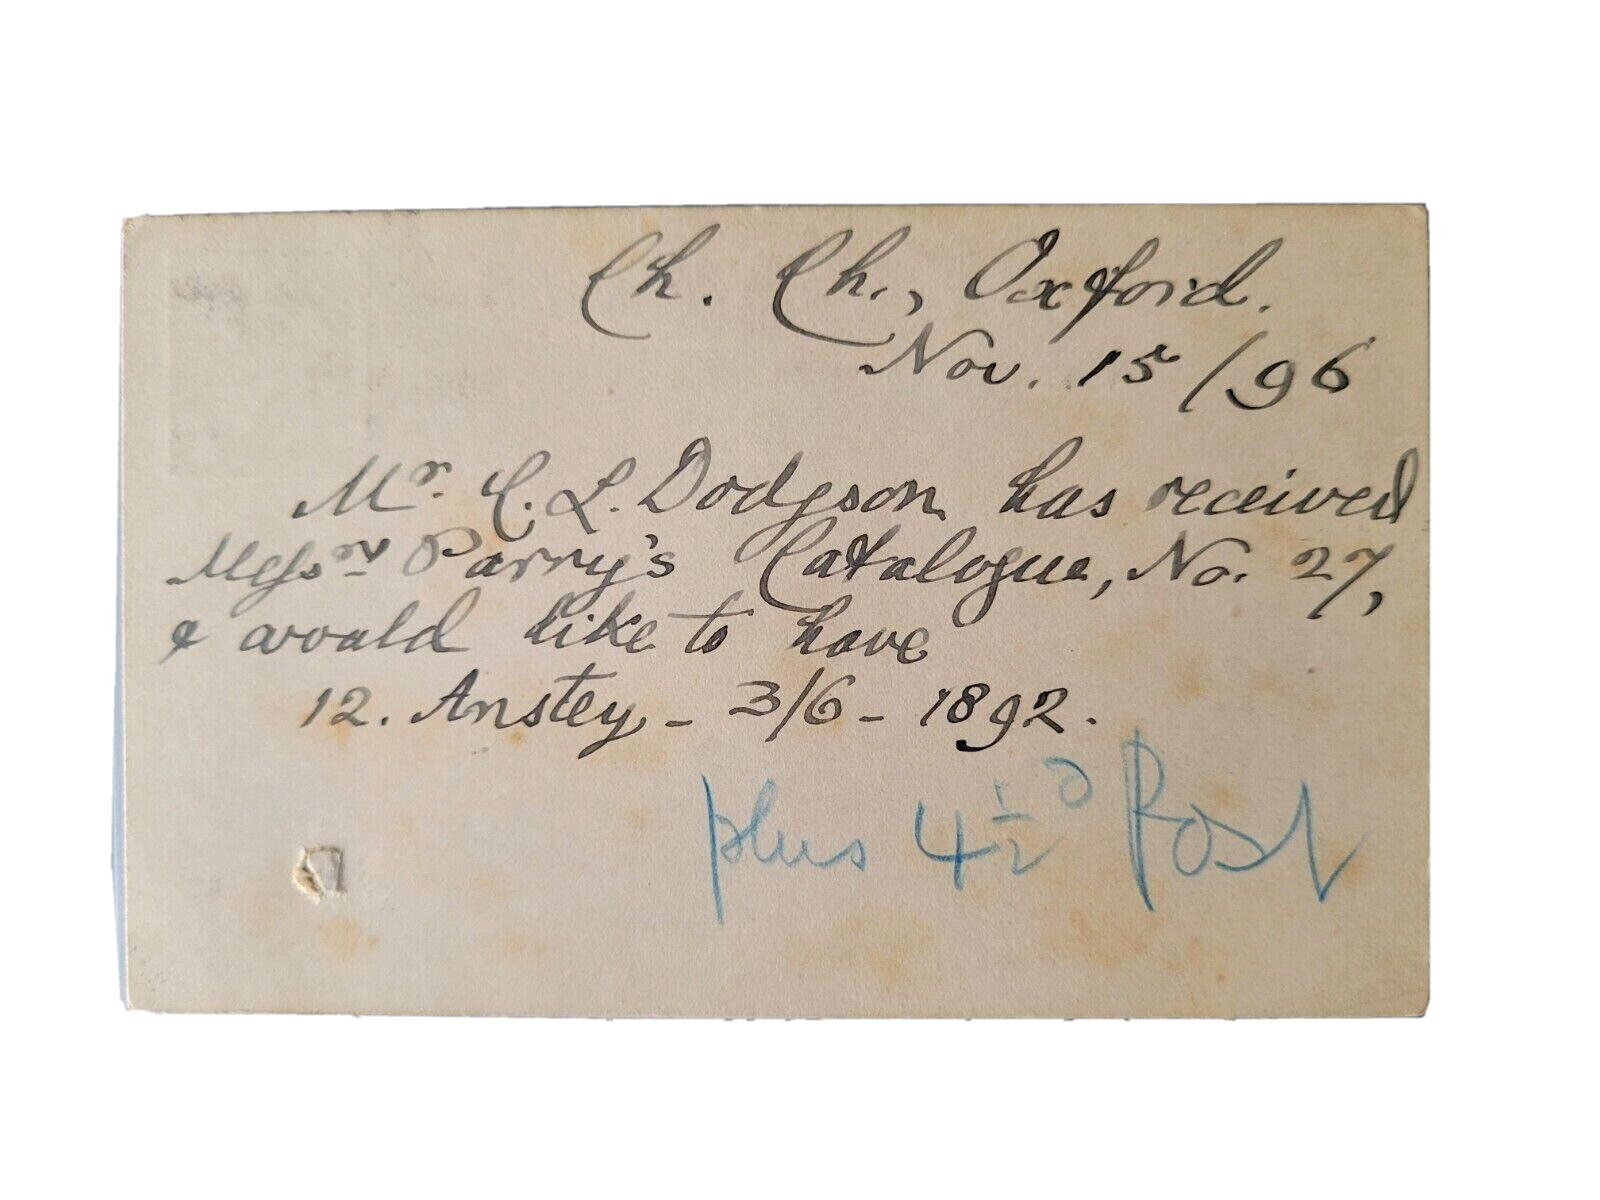 Ch. Ch., Oxford.
Nov. 15/96
Mr. C. L. Dodgson has received
Messrs Parry's Catalogue, No. 27,
& would like to have
12. Anstey - 3/6 - 1892.
plus 4½d Post